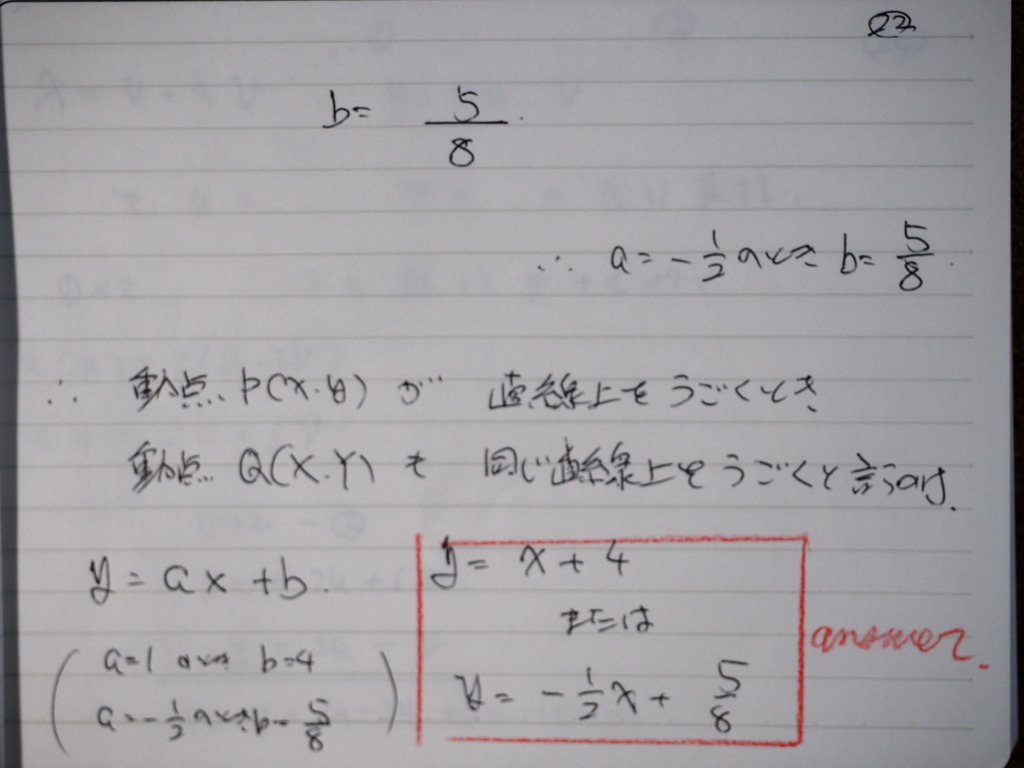 22
b= 5/8.
∴ a=-1/2 のとき b=5/8.
∴ 動点 P(x.y) が 直線上をうごくとき
動点 Q(X.Y) も 同じ直線上をうごくと言うのは.
y=ax+b.
(a=1 のとき b=4
a=-1/2 のとき b=5/8)
y=x+4
または
y=-1/2x+5/8
answer.